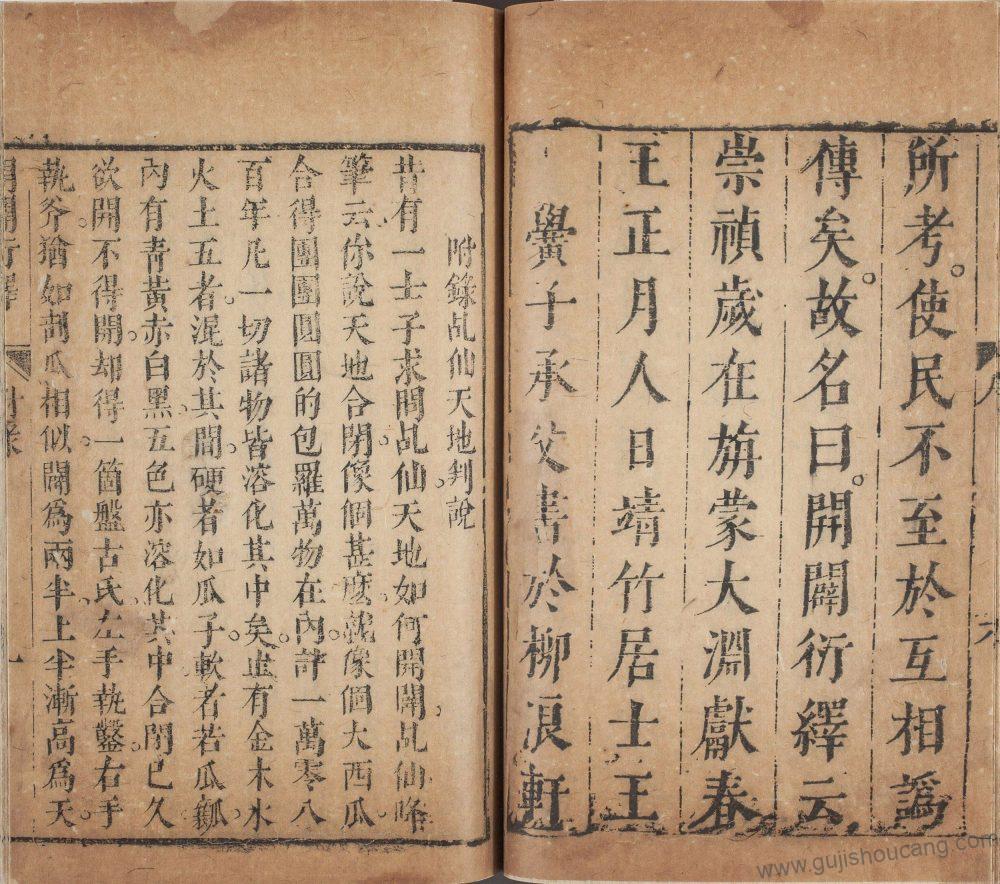 所考。使民不至於互相譌
傳矣。故名曰。開闢衍繹云
崇禎歲在旃蒙大淵獻春
王正月人日靖竹居士王
黌子承父書於柳浪軒
附錄乩仙天地判說
昔有一士子求問乩仙。天地如何開闢。乩仙降
筆云。你說天地合閉。像個甚麼。就像個大西瓜。
合得團團圓圓的。包羅萬物在內。計一萬零八
百年。凡一切諸物。皆溶化其中矣。止有金木水
火土五者。混於其間。硬者如瓜子。軟者若瓜瓤。
內有青黃赤白黑。五色亦溶化其中。合閉已久。
欲開不得開。却得一箇盤古氏。左手執鑿。右手
執斧。猶如剖瓜相似。闢為兩半。上半漸高為天。
開闢衍繹 附錄 一
www.gujishoucang.com